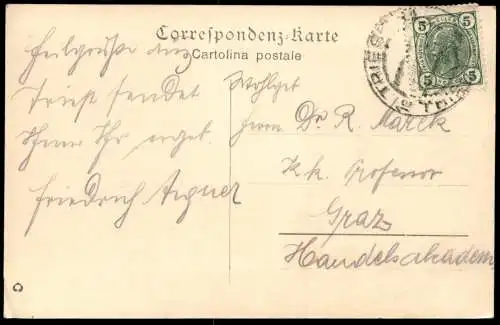 Correspondenz-Karte
Cartolina postale
5 5
5 5
TRIEST
Heilgrüße aus
Triest sendet
Ihnen Ihr ergeb.
Friedrich Aigner
Wohlgeb
Herrn Dr. R. Marek
k.k. Professor
Graz
Handelsakademie